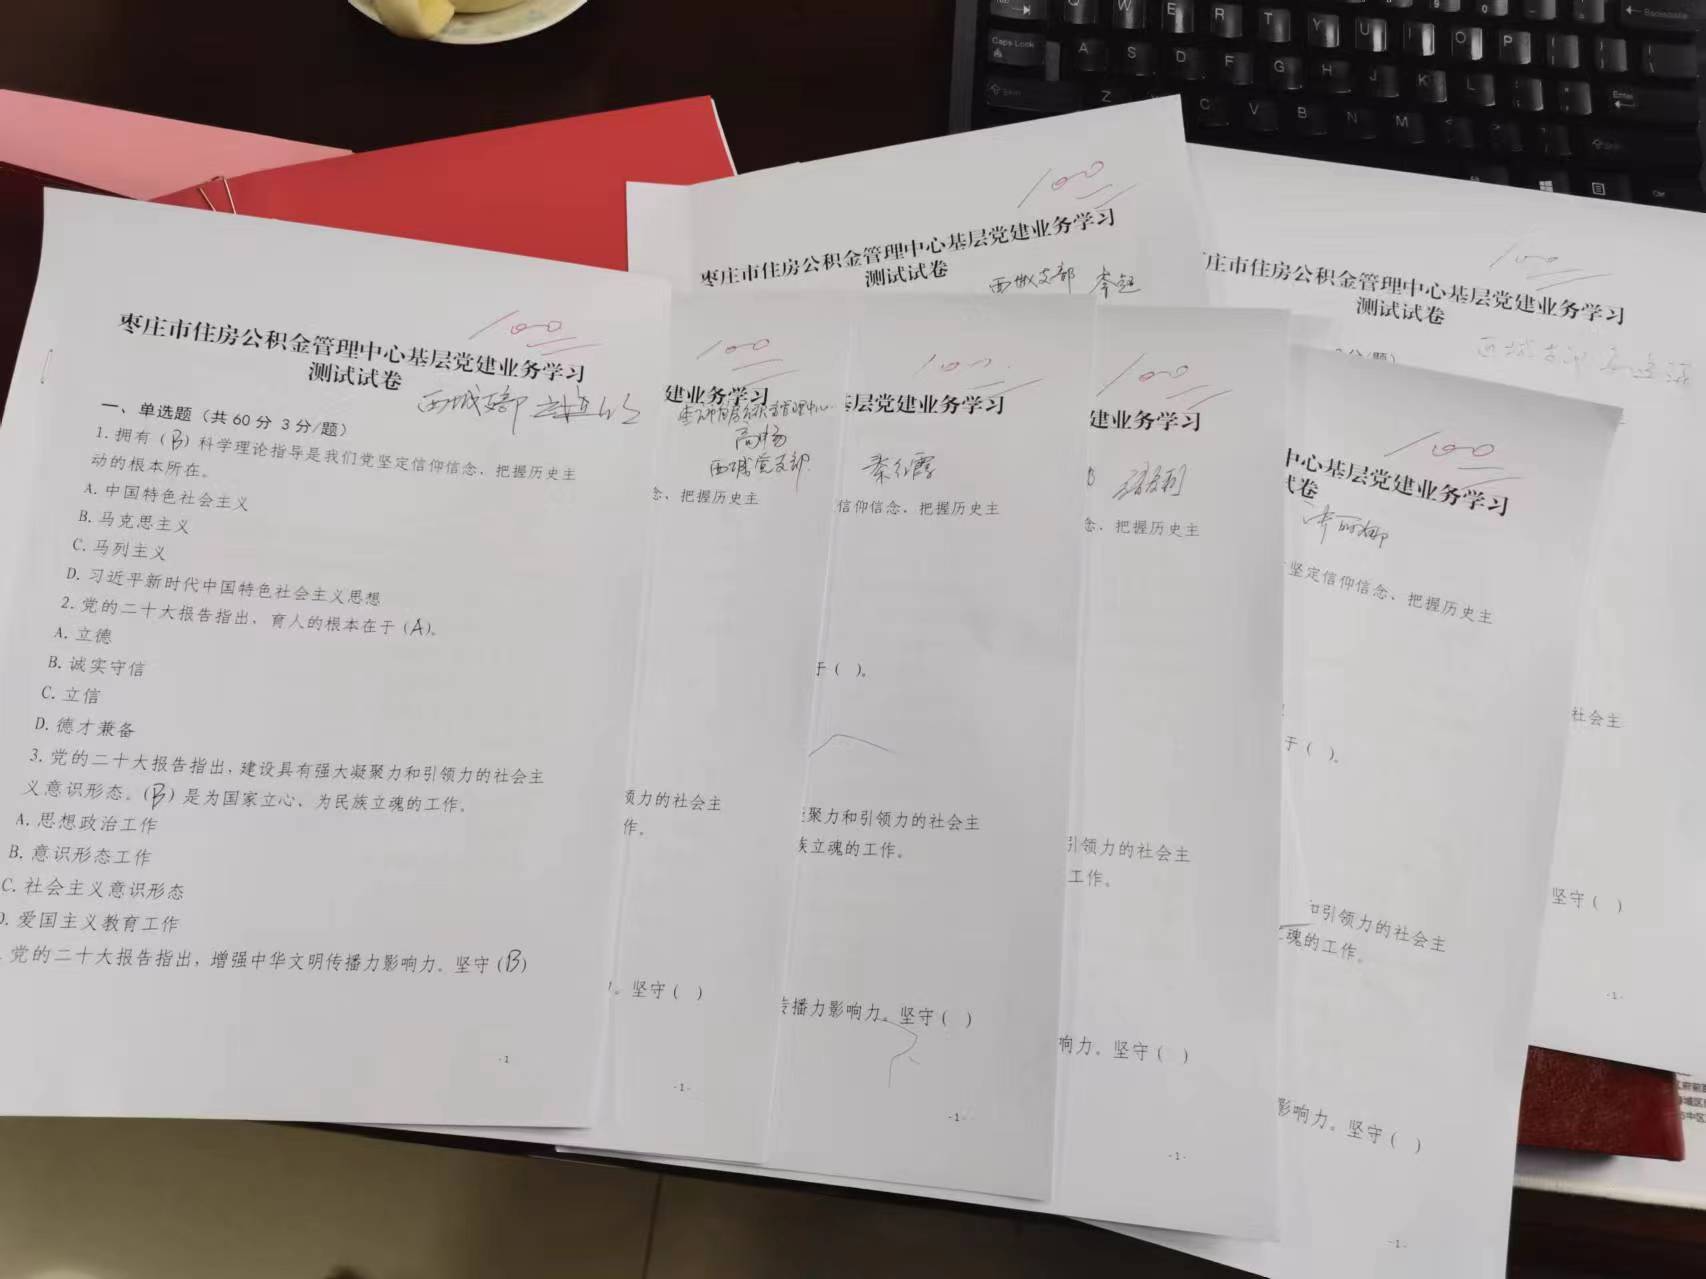 100
枣庄市住房公积金管理中心基层党建业务学习
测试试卷
西城支部
一、单选题（共60分 3分/题）
1. 拥有（B）科学理论指导是我们党坚定信仰信念、把握历史主
动的根本所在。
A. 中国特色社会主义
B. 马克思主义
C. 马列主义
D. 习近平新时代中国特色社会主义思想
2. 党的二十大报告指出，育人的根本在于（A）。
A. 立德
B. 诚实守信
C. 立信
D. 德才兼备
3. 党的二十大报告指出，建设具有强大凝聚力和引领力的社会主
义意识形态。（B）是为国家立心、为民族立魂的工作。
A. 思想政治工作
B. 意识形态工作
C. 社会主义意识形态
D. 爱国主义教育工作
党的二十大报告指出，增强中华文明传播力影响力。坚守（B）
-1
100
枣庄市住房公积金管理中心基层党建业务学习
测试试卷
西城支部 李超
100
建业务学习
高杨
西城党支部
念、把握历史主
领力的社会主
作。
坚守（ ）
-1-
100
基层党建业务学习
秦红霞
信仰信念、把握历史主
于（ ）。
聚力和引领力的社会主
族立魂的工作。
传播力影响力。坚守（ ）
-1-
100
建业务学习
念、把握历史主
引领力的社会主
工作。
响力。坚守（ ）
-1-
100
中心基层党建业务学习
试卷
坚定信仰信念、把握历史主
于（ ）。
和引领力的社会主
立魂的工作。
影响力。坚守（ ）
-1-
100
庄市住房公积金管理中心基层党建业务学习
测试试卷
西城支部
分/题）
社会主
坚守（ ）
-1-
Caps Lock
Q W E R T Y U I O P
A S D F G H J K L
Z X C V B N M
Backspace
Enter